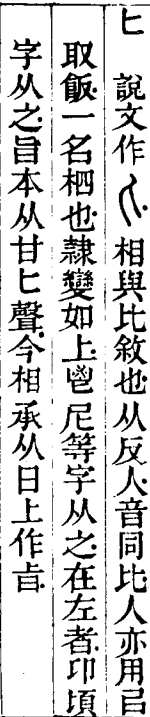 匕　說文作𠤎相與比敘也从反人音同比人亦用㠯
取飯一名柶也隸變如上鬯尼等字从之在左者卬頃
字从之旨本从甘匕聲今相承从日上作㫖